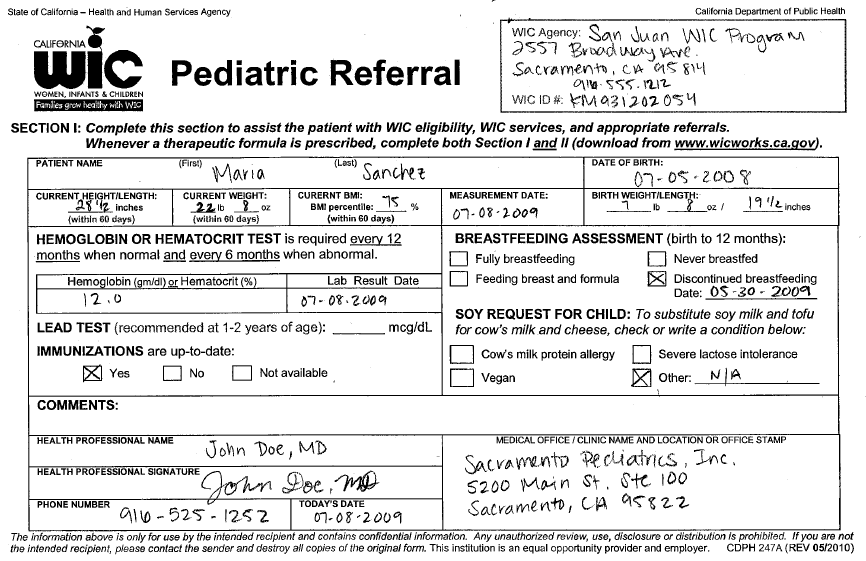 State of California – Health and Human Services Agency
California Department of Public Health
CALIFORNIA
WIC
WOMEN, INFANTS & CHILDREN
Families grow healthy with WIC
Pediatric Referral
WIC Agency: San Juan WIC Program
2557 Broadway Ave.
Sacramento, CA 95814
916.555.1212
WIC ID#: KM931202054
SECTION I: Complete this section to assist the patient with WIC eligibility, WIC services, and appropriate referrals.
Whenever a therapeutic formula is prescribed, complete both Section I and II (download from www.wicworks.ca.gov).
PATIENT NAME (First) Maria (Last) Sanchez
DATE OF BIRTH: 07-05-2008
CURRENT HEIGHT/LENGTH: 28 1/2 inches (within 60 days)
CURRENT WEIGHT: 22 lb 8 oz (within 60 days)
CURERNT BMI: BMI percentile: 75 % (within 60 days)
MEASUREMENT DATE: 07-08-2009
BIRTH WEIGHT/LENGTH: 7 lb 8 oz / 19 1/2 inches
HEMOGLOBIN OR HEMATOCRIT TEST is required every 12
months when normal and every 6 months when abnormal.
Hemoglobin (gm/dl) or Hematocrit (%) Lab Result Date
12.0 07-08.2009
LEAD TEST (recommended at 1-2 years of age): ______ mcg/dL
IMMUNIZATIONS are up-to-date:
☒ Yes ☐ No ☐ Not available
BREASTFEEDING ASSESSMENT (birth to 12 months):
☐ Fully breastfeeding ☐ Never breastfed
☐ Feeding breast and formula ☒ Discontinued breastfeeding
Date: 05-30-2009
SOY REQUEST FOR CHILD: To substitute soy milk and tofu
for cow's milk and cheese, check or write a condition below:
☐ Cow's milk protein allergy ☐ Severe lactose intolerance
☐ Vegan ☒ Other: N/A
COMMENTS:
HEALTH PROFESSIONAL NAME
John Doe, MD
HEALTH PROFESSIONAL SIGNATURE
John Doe, MD
PHONE NUMBER
916-525-1252
TODAY'S DATE
07-08-2009
MEDICAL OFFICE / CLINIC NAME AND LOCATION OR OFFICE STAMP
Sacramento Pediatrics, Inc.
5200 Main St. Ste 100
Sacramento, CA 95822
The information above is only for use by the intended recipient and contains confidential information. Any unauthorized review, use, disclosure or distribution is prohibited. If you are not
the intended recipient, please contact the sender and destroy all copies of the original form. This institution is an equal opportunity provider and employer. CDPH 247A (REV 05/2010)